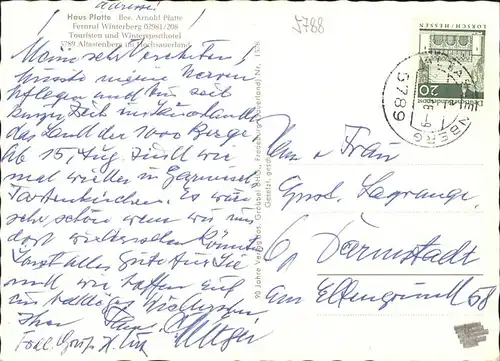 adresse!
Haus Platte Bes. Arnold Platte
Fernruf Winterberg 02981/208
Touristen und Wintersporthotel
5789 Altastenberg im Hochsauerland
5788
Meine sehr Verehrten!
musste meine Nerven
pflegen und bin seit
kurzer Zeit im Sauerland
das Land der 1000 Berge
Ab 15. Aug. sind wir
mal wieder in Garmisch
Partenkirchen. Es wäre
sehr schön wenn wir uns
dort wiedersehen könnten
Sonst alles Gute für Sie
und wir hoffen auf
ein baldiges Wiedersehen
Ihre
90 Jahre Verlag
Gesetzl. gesch.
LORSCH/HESSEN
Deutsche Bundespost
20
5789
Herrn u. Frau
Lagrange
61 Darmstadt
am Elfengrund 68